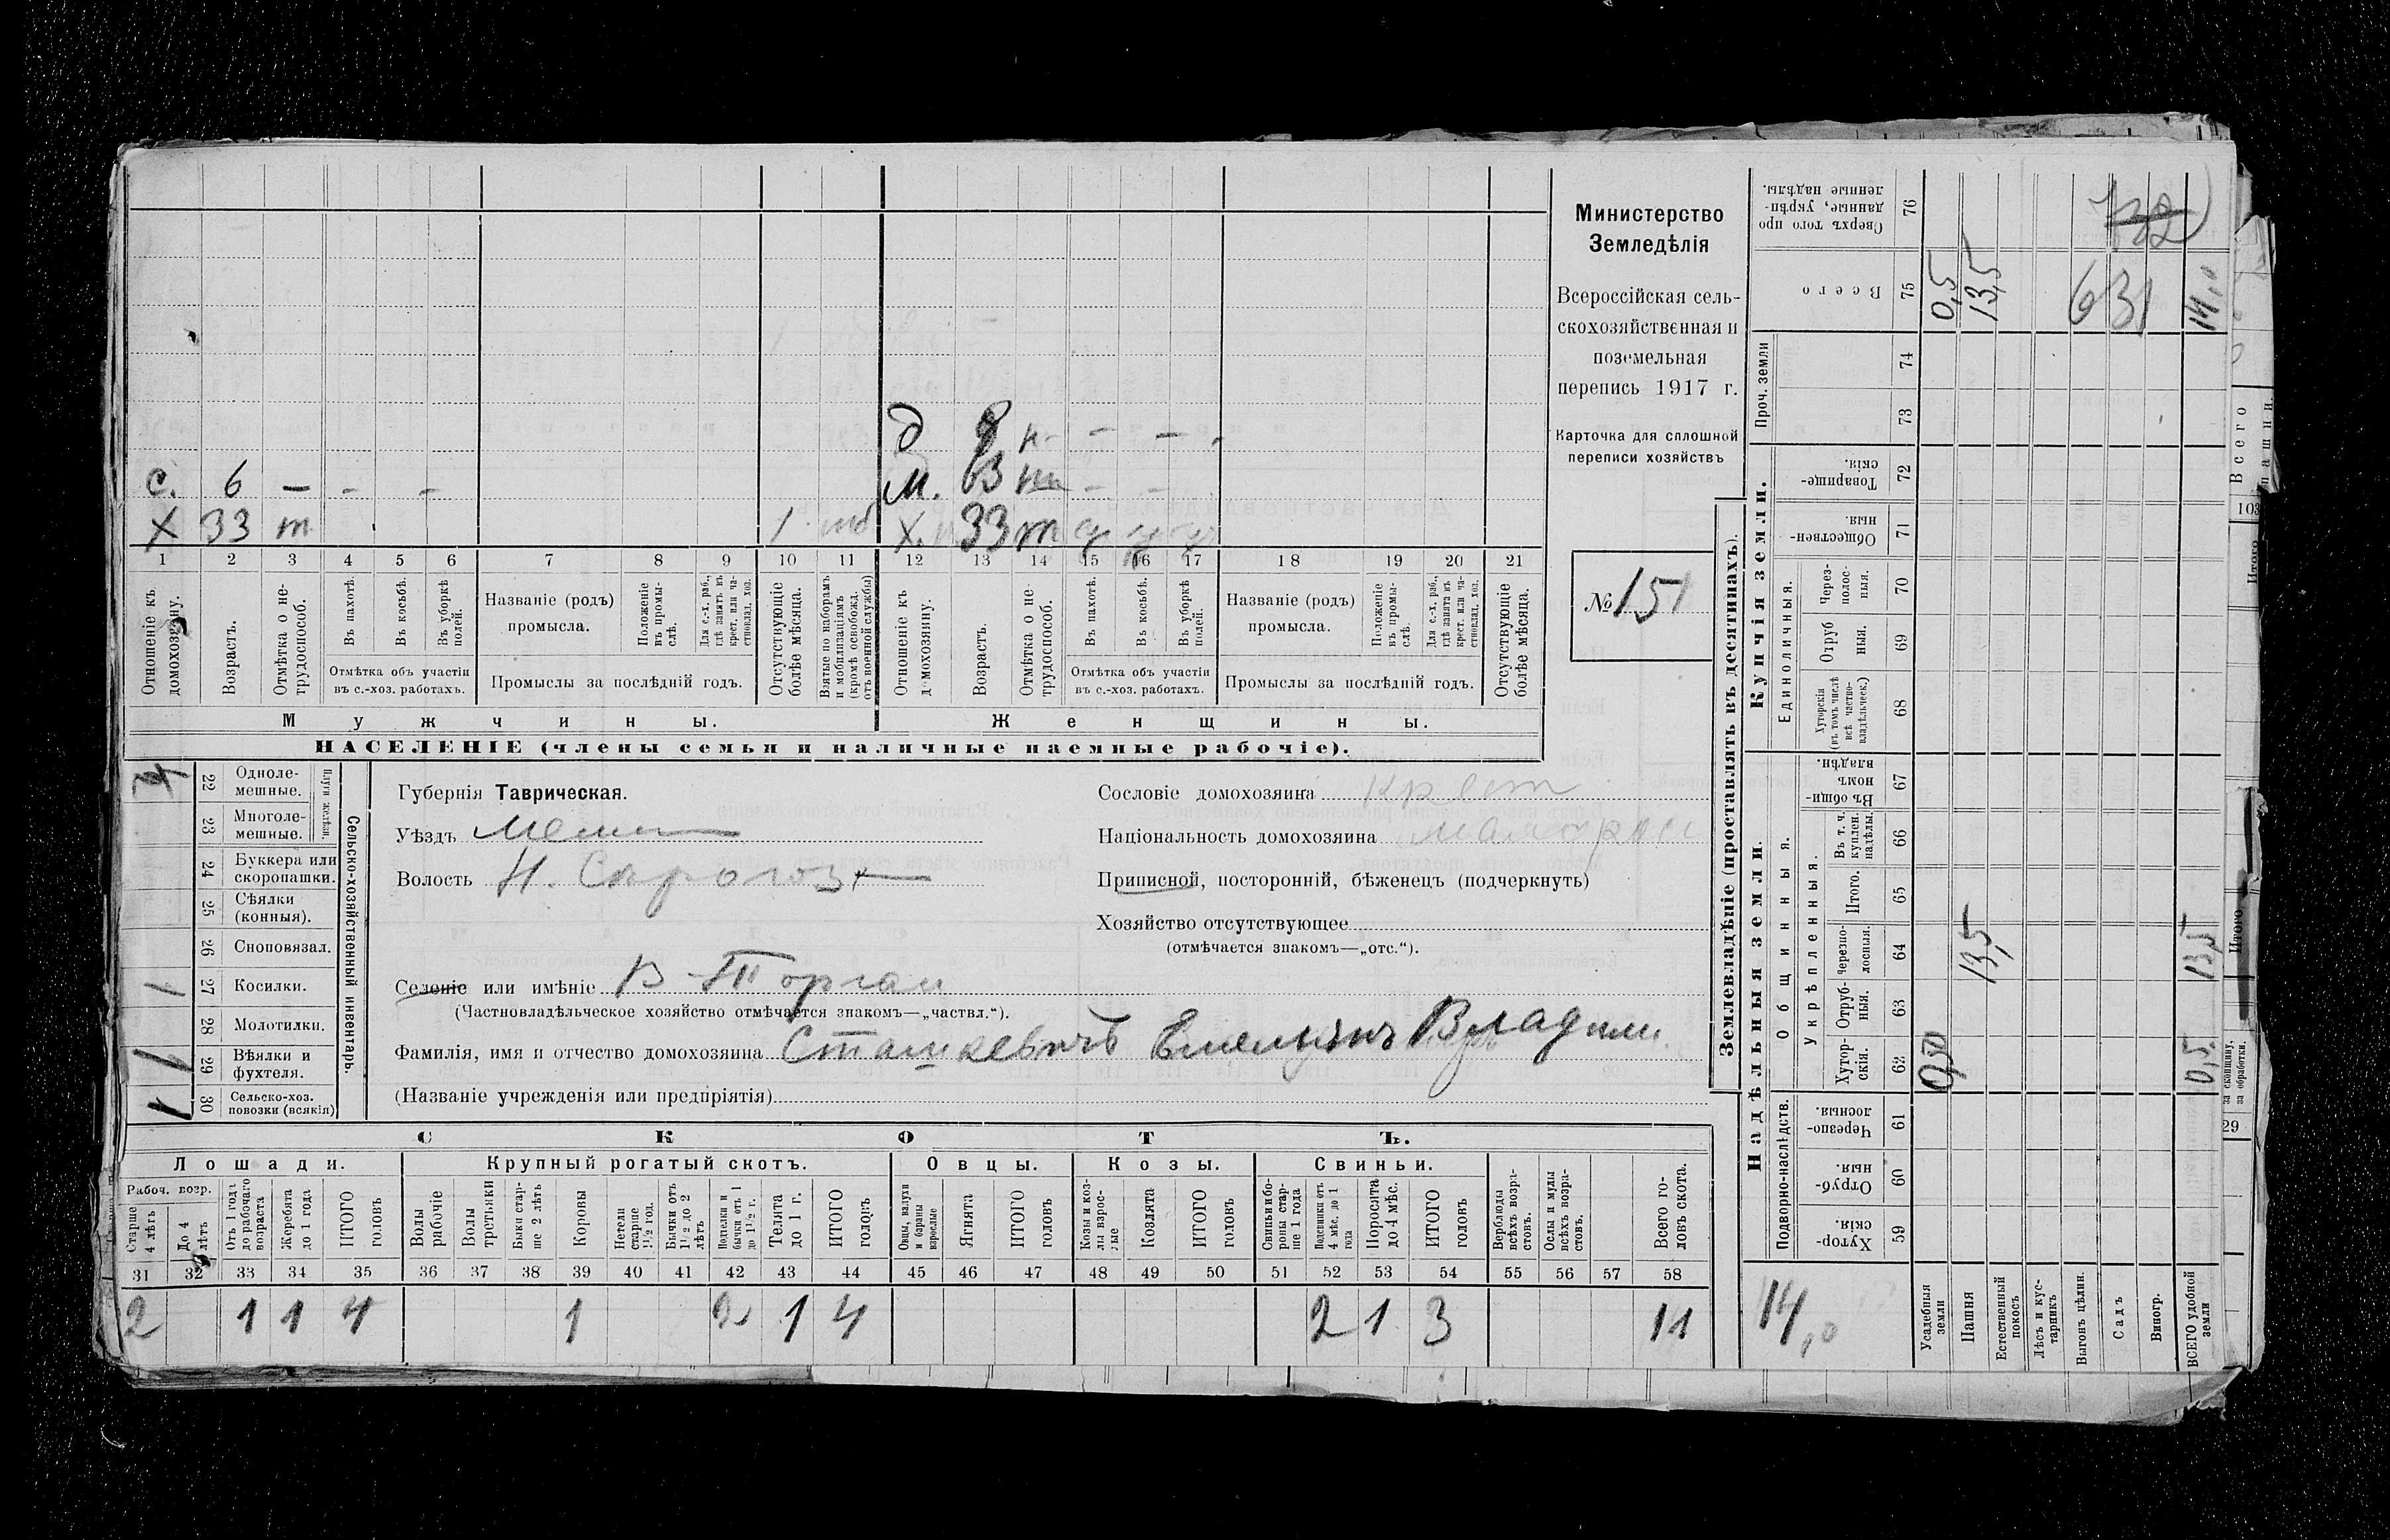 Министерство
Земледѣлія
Всероссійская сель-
скохозяйственная и
поземельная
перепись 1917 г.
Карточка для сплошной
переписи хозяйствъ
№ 151
д 9 н - - - -
с. 6 - - - м. 63 - -
Х 33 т 1 Х. 33 т
1 2 3 4 5 6 7 8 9 10 11 12 13 14 15 16 17 18 19 20 21
Отношеніе къ домохозяину.
Возрастъ.
Отмѣтка о не-трудоспособ.
Въ пахотѣ.
Въ косьбѣ.
Въ уборкѣ полей.
Отмѣтка объ участіи
въ с.-хоз. работахъ.
Названіе (родъ)
промысла.
Положеніе въ промы-слѣ.
Для с.-х. раб., гдѣ занятъ въ крест. или ча-стновлад. хоз.
Промыслы за послѣдній годъ.
Отсутствующіе болѣе мѣсяца.
Взятые по наборамъ и мобилизаціямъ (кромѣ освобожд. отъ военной службы)
Отношеніе къ домохозяину.
Возрастъ.
Отмѣтка о не-трудоспособ.
Въ пахотѣ.
Въ косьбѣ.
Въ уборкѣ полей.
Отмѣтка объ участіи
въ с.-хоз. работахъ.
Названіе (родъ)
промысла.
Положеніе въ промы-слѣ.
Для с.-х. раб., гдѣ занята въ крест. или ча-стновлад. хоз.
Промыслы за послѣдній годъ.
Отсутствующіе болѣе мѣсяца.
Мужчины. Женщины.
НАСЕЛЕНІЕ (члены семьи и наличные наемные рабочіе).
Сельско-хозяйственный инвентарь.
Плуги желѣзн.
22 Одноле-мешные.
23 Многоле-мешные.
24 Буккера или скоропашки.
25 Сѣялки (конныя).
26 Сноповязал.
1 27 Косилки.
28 Молотилки.
1 29 Вѣялки и фухтеля.
1 30 Сельско-хоз. повозки (всякія)
Губернія Таврическая.
Уѣздъ Мелит
Волость Н. Сѣрогоз
Селеніе или имѣніе В-Торгаи
(Частновладѣльческое хозяйство отмѣчается знакомъ—„частвл.“).
Фамилія, имя и отчество домохозяина Сташкевичъ Емельянъ Владим.
(Названіе учрежденія или предпріятія)
Сословіе домохозяина крест
Національность домохозяина малорос
Приписной, посторонній, бѣженец (подчеркнуть)
Хозяйство отсутствующее
(отмѣчается знакомъ—„отс.“).
СКОТЪ.
Лошади. Крупный рогатый скотъ. Овцы. Козы. Свиньи.
Рабоч. возр.
Старше 4 лѣтъ
До 4 лѣтъ
Отъ 1 года до рабочаго возраста
Жеребята до 1 года
ИТОГО головъ
Волы рабочіе
Волы третьяки
Быки стар-ше 2 лѣтъ
Коровы
Нетели старше 1½ год.
Бычки отъ 1½ до 2 лѣтъ
Подтелки и бычки отъ 1 до 1½ г.
Телята до 1 г.
ИТОГО головъ
Овцы, валухи и бараны взрослые
Ягнята
ИТОГО головъ
Козы и коз-лы взрос-лые
Козлята
ИТОГО головъ
Свиньи и бо-ровы стар-ше 1 года
Подсвинки отъ 4 мѣс. до 1 года
Поросята до 4 мѣс.
ИТОГО головъ
Верблюды всѣхъ возра-стовъ.
Ослы и мулы всѣхъ возра-стовъ.
Всего го-ловъ скота.
31 32 33 34 35 36 37 38 39 40 41 42 43 44 45 46 47 48 49 50 51 52 53 54 55 56 57 58
2 1 1 4 1 2 1 4 2 1 3 11
Землевладѣніе (проставлять въ десятинахъ).
Надѣльныя земли. Купчія земли.
Подворно-наслѣдств.
Общинныя.
Укрѣпленныя.
Единоличныя.
Проч. земли
Хутор-скія. 59
Отруб-ныя. 60
Черезпо-лосныя. 61
Хутор-скія. 62
Отруб-ныя. 63
Черезпо-лосныя. 64
Итого. 65
Въ т. ч. куплен. надѣлы. 66
Въ общи-номъ владѣн. 67
Хуторскія (въ томъ числѣ всѣ частно-владѣльческ.) 68
Отруб ныя. 69
Через-полос-ныя. 70
Обществен-ныя. 71
Товарище-скія. 72
73
74
Всего 75
Сверхъ того про данные, укрѣп-ленные надѣлы. 76
14,0
Усадебныя земли 0,50 0,5
Пашня 13,5 13,5
Естественный покосъ
Лѣсъ и кус-тарникъ
Выгонъ цѣлин.
Садъ
Виногр.
ВСЕГО удобной земли 0,5 13,5 14,0
631
Всего
пашни.
103
Итого
Итого
за скопщину,
за обработки.
29